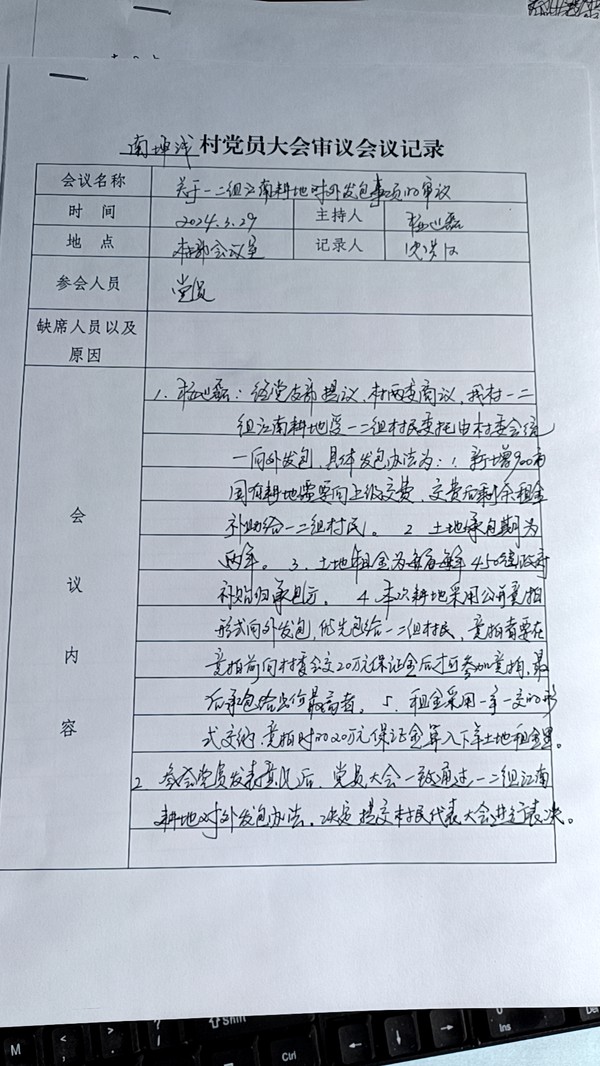 南坤浅村党员大会审议会议记录
会议名称 关于一二组江南耕地对外发包事项的审议
时 间 2024.3.29 主持人
地 点 村部会议室 记录人
参会人员 党员
缺席人员以及原因
会议内容
1. 经党支部提议,村两委商议,我村一二
组江南耕地受一二组村民委托由村委会统
一向外发包,具体发包办法为:1. 新增900亩
国有耕地需要向上级交费,交费后剩余租金
补助给一二组村民。 2. 土地承包期为
两年。 3. 土地租金为每亩每年450 政府
补贴归承包方。 4. 本次耕地采用公开竞拍
形式向外发包,优先包给一二组村民,竞拍者要在
竞拍前向村委会交20万元保证金后才可参加竞拍,最
后承包给出价最高者。 5. 租金采用一年一交的形
式交纳,竞拍时的20万元保证金算入下年土地租金里。
2. 参会党员发表意见后,党员大会一致通过一二组江南
耕地对外发包办法,决定提交村民代表大会进行表决。
Shift
Ctrl
M
<
>
?
/
0
Ins
Del